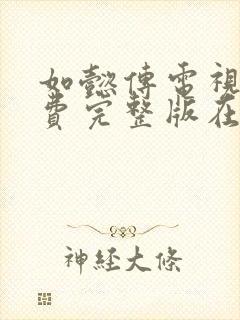 如懿傳電視
費完整版在
神經大條